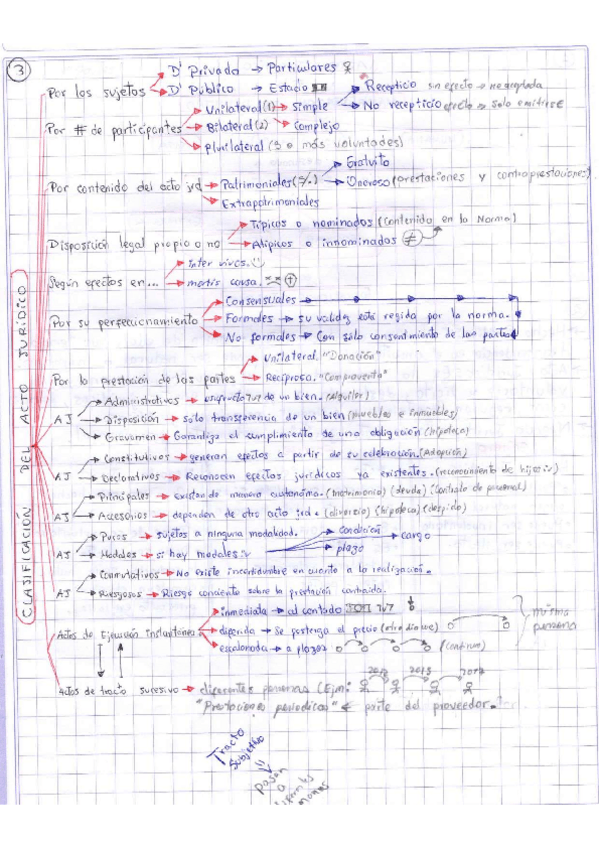 3
D' Privado → Particulares
Por los sujetos
D' Público → Estado
Recepticio sin efecto → no aceptada
Unilateral (1) → simple
No recepticio efecto → solo emitirse
Por # de participantes
Bilateral (2)
Complejo
plurilateral (3 o más voluntades)
Gratuito
Por contenido del acto jrd
Patrimoniales (S/.)
Oneroso (prestaciones y contraprestaciones)
Extrapatrimoniales
Típicos o nominados (Contenido en la Norma)
Disposición legal propio o no
Atípicos o innominados ≠
inter vivos.
Según efectos en...
mortis causa.
Consensuales
Por su perfeccionamiento
Formales → su validez está regida por la norma.
No formales → Con sólo consentimiento de las partes
Unilateral. "Donación"
Por la prestación de las partes
Recíproca. "Compraventa"
AJ
Administrativos → de un bien. (Alquiler)
Disposición → solo transferencia de un bien (muebles e inmuebles)
Gravamen → Garantiza el cumplimiento de una obligación (hipoteca)
AJ
Constitutivos → generan efectos a partir de su celebración. (Adopción)
Declarativos → Reconocen efectos jurídicos ya existentes. (reconocimiento de hijo
AJ
Principales → existen de manera autónoma. (matrimonio) (deuda) (Contrato de personal)
Accesorios → dependen de otro acto jrd. (divorcio) (hipoteca) (despido)
AJ
Puros → sujetos a ninguna modalidad.
Modales → si hay modales:
condición
cargo
plazo
AJ
Conmutativos → No existe incertidumbre en cuanto a la realización.
Riesgosos → Riesgo consciente sobre la prestación contraída.
Actos de Ejecución instantánea
inmediata → al contado
diferida → se posterga el precio (otro día que)
escalonada → a plazos
(continuo)
misma persona
2012 2013 2014
Actos de tracto sucesivo → diferentes personas (Ejm:
"Prestaciones periodicas" parte del proveedor.
Tracto
subjetivo
=
pasan
a
CLASIFICACION DEL ACTO JURÍDICO